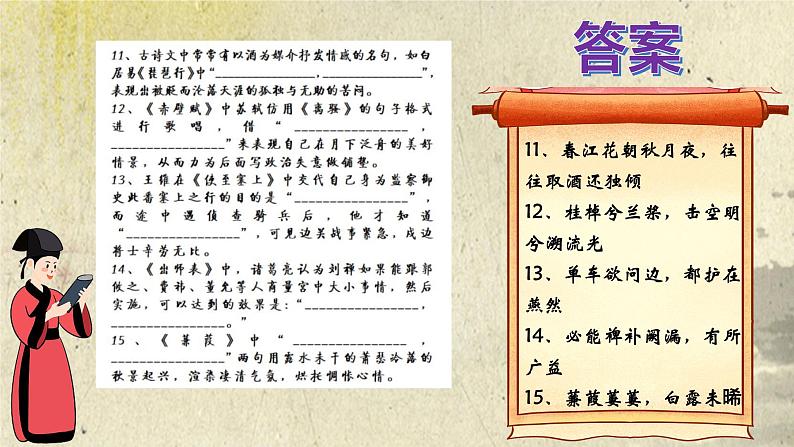 11、古诗文中常常有以酒为媒介抒发情感的名句，如白
居易《琵琶行》中“______________，______________”，
表现出被贬而沦落天涯的孤独与无助的苦闷。
12、《赤壁赋》中苏轼仿用《离骚》的句子格式
进行歌唱，借“________________，
________________”来表现自己在月下泛舟的美好
情景，从而为后面写政治失意做铺垫。
13、王维在《使至塞上》中交代自己身为监察御
史此番塞上之行的目的是“________________”，
而途中遇侦查骑兵后，他才知道
“________________”，可见边关战事紧急，戍边
将士辛劳无比。
14、《出师表》中，诸葛亮认为刘禅如果能跟郭
攸之、费祎、董允等人商量宫中大小事情，然后
实施，可以达到的效果是：“________________，
________________。”
15、《蒹葭》中“________________，
________________”两句用露水未干的萧瑟冷落的
秋景起兴，渲染凄清气氛，烘托惆怅心情。
答案
11、春江花朝秋月夜，往
往取酒还独倾
12、桂棹兮兰桨，击空明
兮溯流光
13、单车欲问边，都护在
燕然
14、必能裨补阙漏，有所
广益
15、蒹葭萋萋，白露未晞